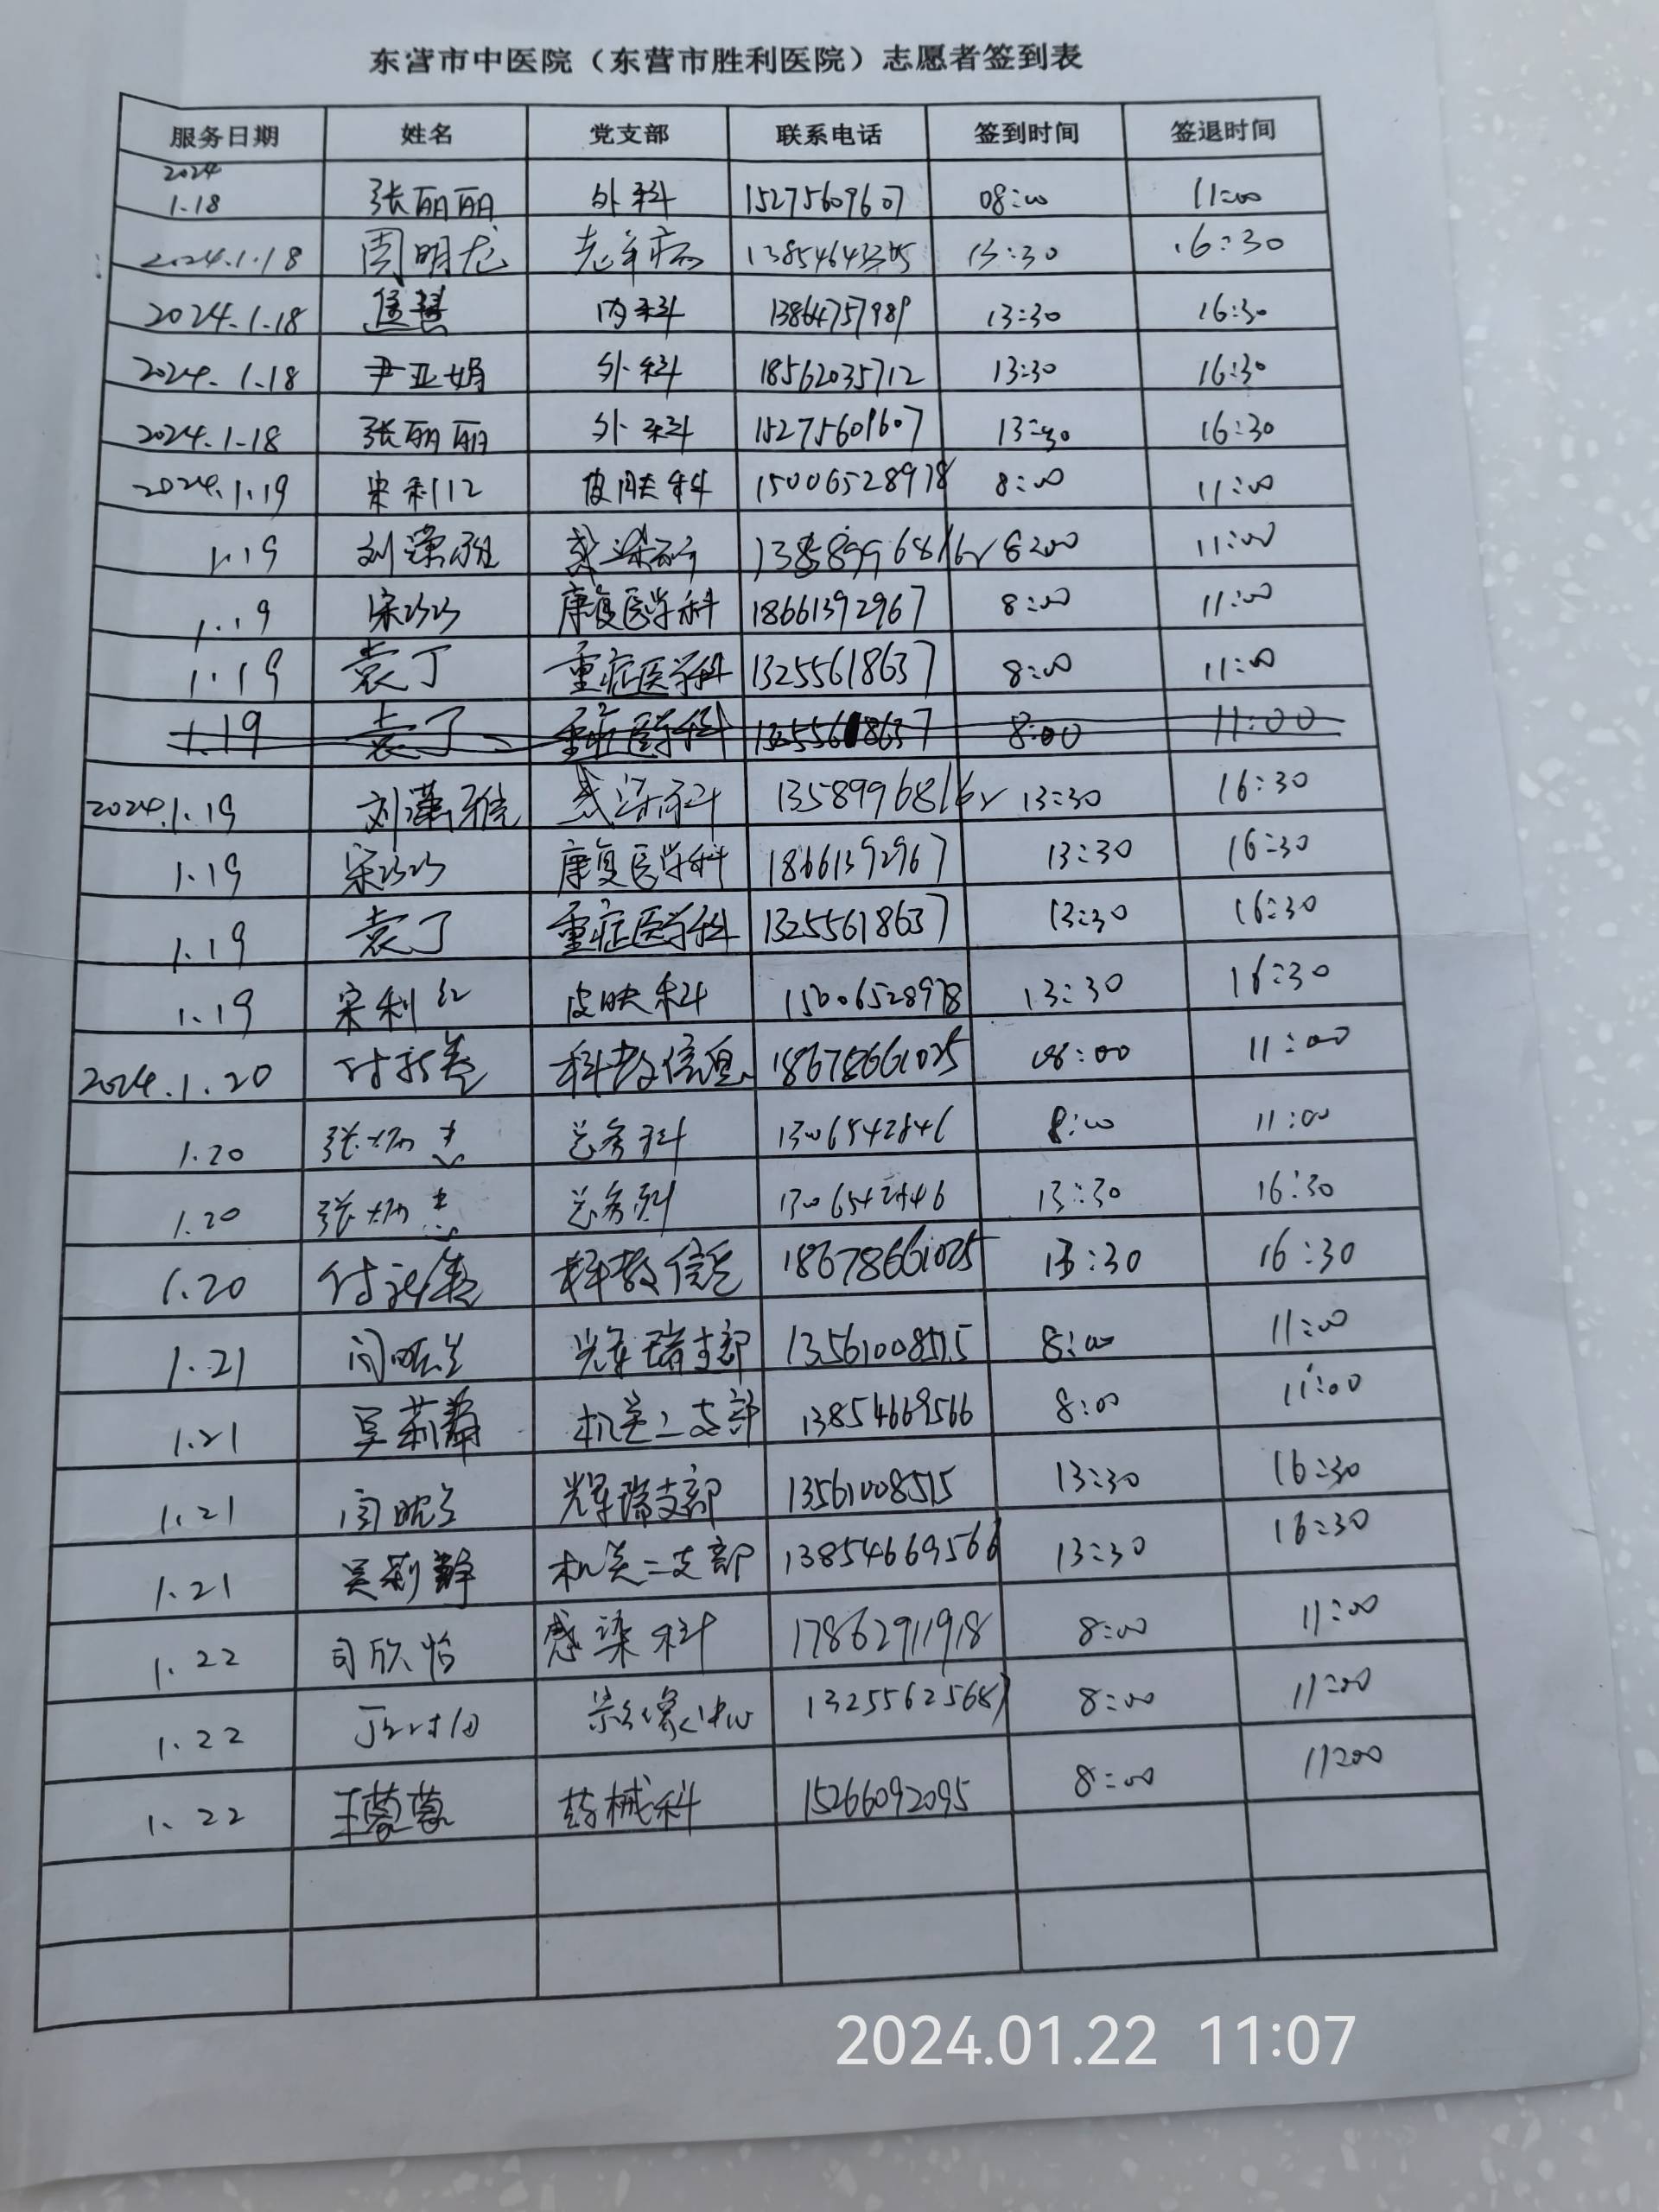 东营市中医院（东营市胜利医院）志愿者签到表
服务日期 姓名 党支部 联系电话 签到时间 签退时间
2024
1.18 张丽丽 外科 15275609607 08:00 11:00
2024.1.18 周明龙 老年病 13:30 16:30
2024.1.18 内科 13864757989 13:30 16:30
2024.1.18 尹亚娟 外科 18562035712 13:30 16:30
2024.1.18 张丽丽 外科 15275609607 13:30 16:30
2024.1.19 宋利红 皮肤科 15006528978 8:00 11:00
1.19 感染科 8:00 11:00
1.19 康复医学科 18661392967 8:00 11:00
1.19 袁丁 重症医学科 13255618637 8:00 11:00
1.19 袁丁 重症医学科 13255618637 8:00 11:00
2024.1.19 感染科 13589996816 13:30 16:30
1.19 康复医学科 18661392967 13:30 16:30
1.19 袁丁 重症医学科 13255618637 13:30 16:30
1.19 宋利红 皮肤科 15006528978 13:30 16:30
2024.1.20 科教信息 18678661025 08:00 11:00
1.20 总务科 13065442846 8:00 11:00
1.20 总务科 13:30 16:30
1.20 科教信息 18678661025 13:30 16:30
1.21 辉瑞支部 13561008515 8:00 11:00
1.21 吴莉静 机关二支部 13854669566 8:00 11:00
1.21 辉瑞支部 13561008515 13:30 16:30
1.21 吴莉静 机关二支部 13854669566 13:30 16:30
1.22 司欣怡 感染科 17862911918 8:00 11:00
1.22 影像中心 13255625687 8:00 11:00
1.22 王蒙蒙 药械科 15266092095 8:00 11:00
2024.01.22 11:07